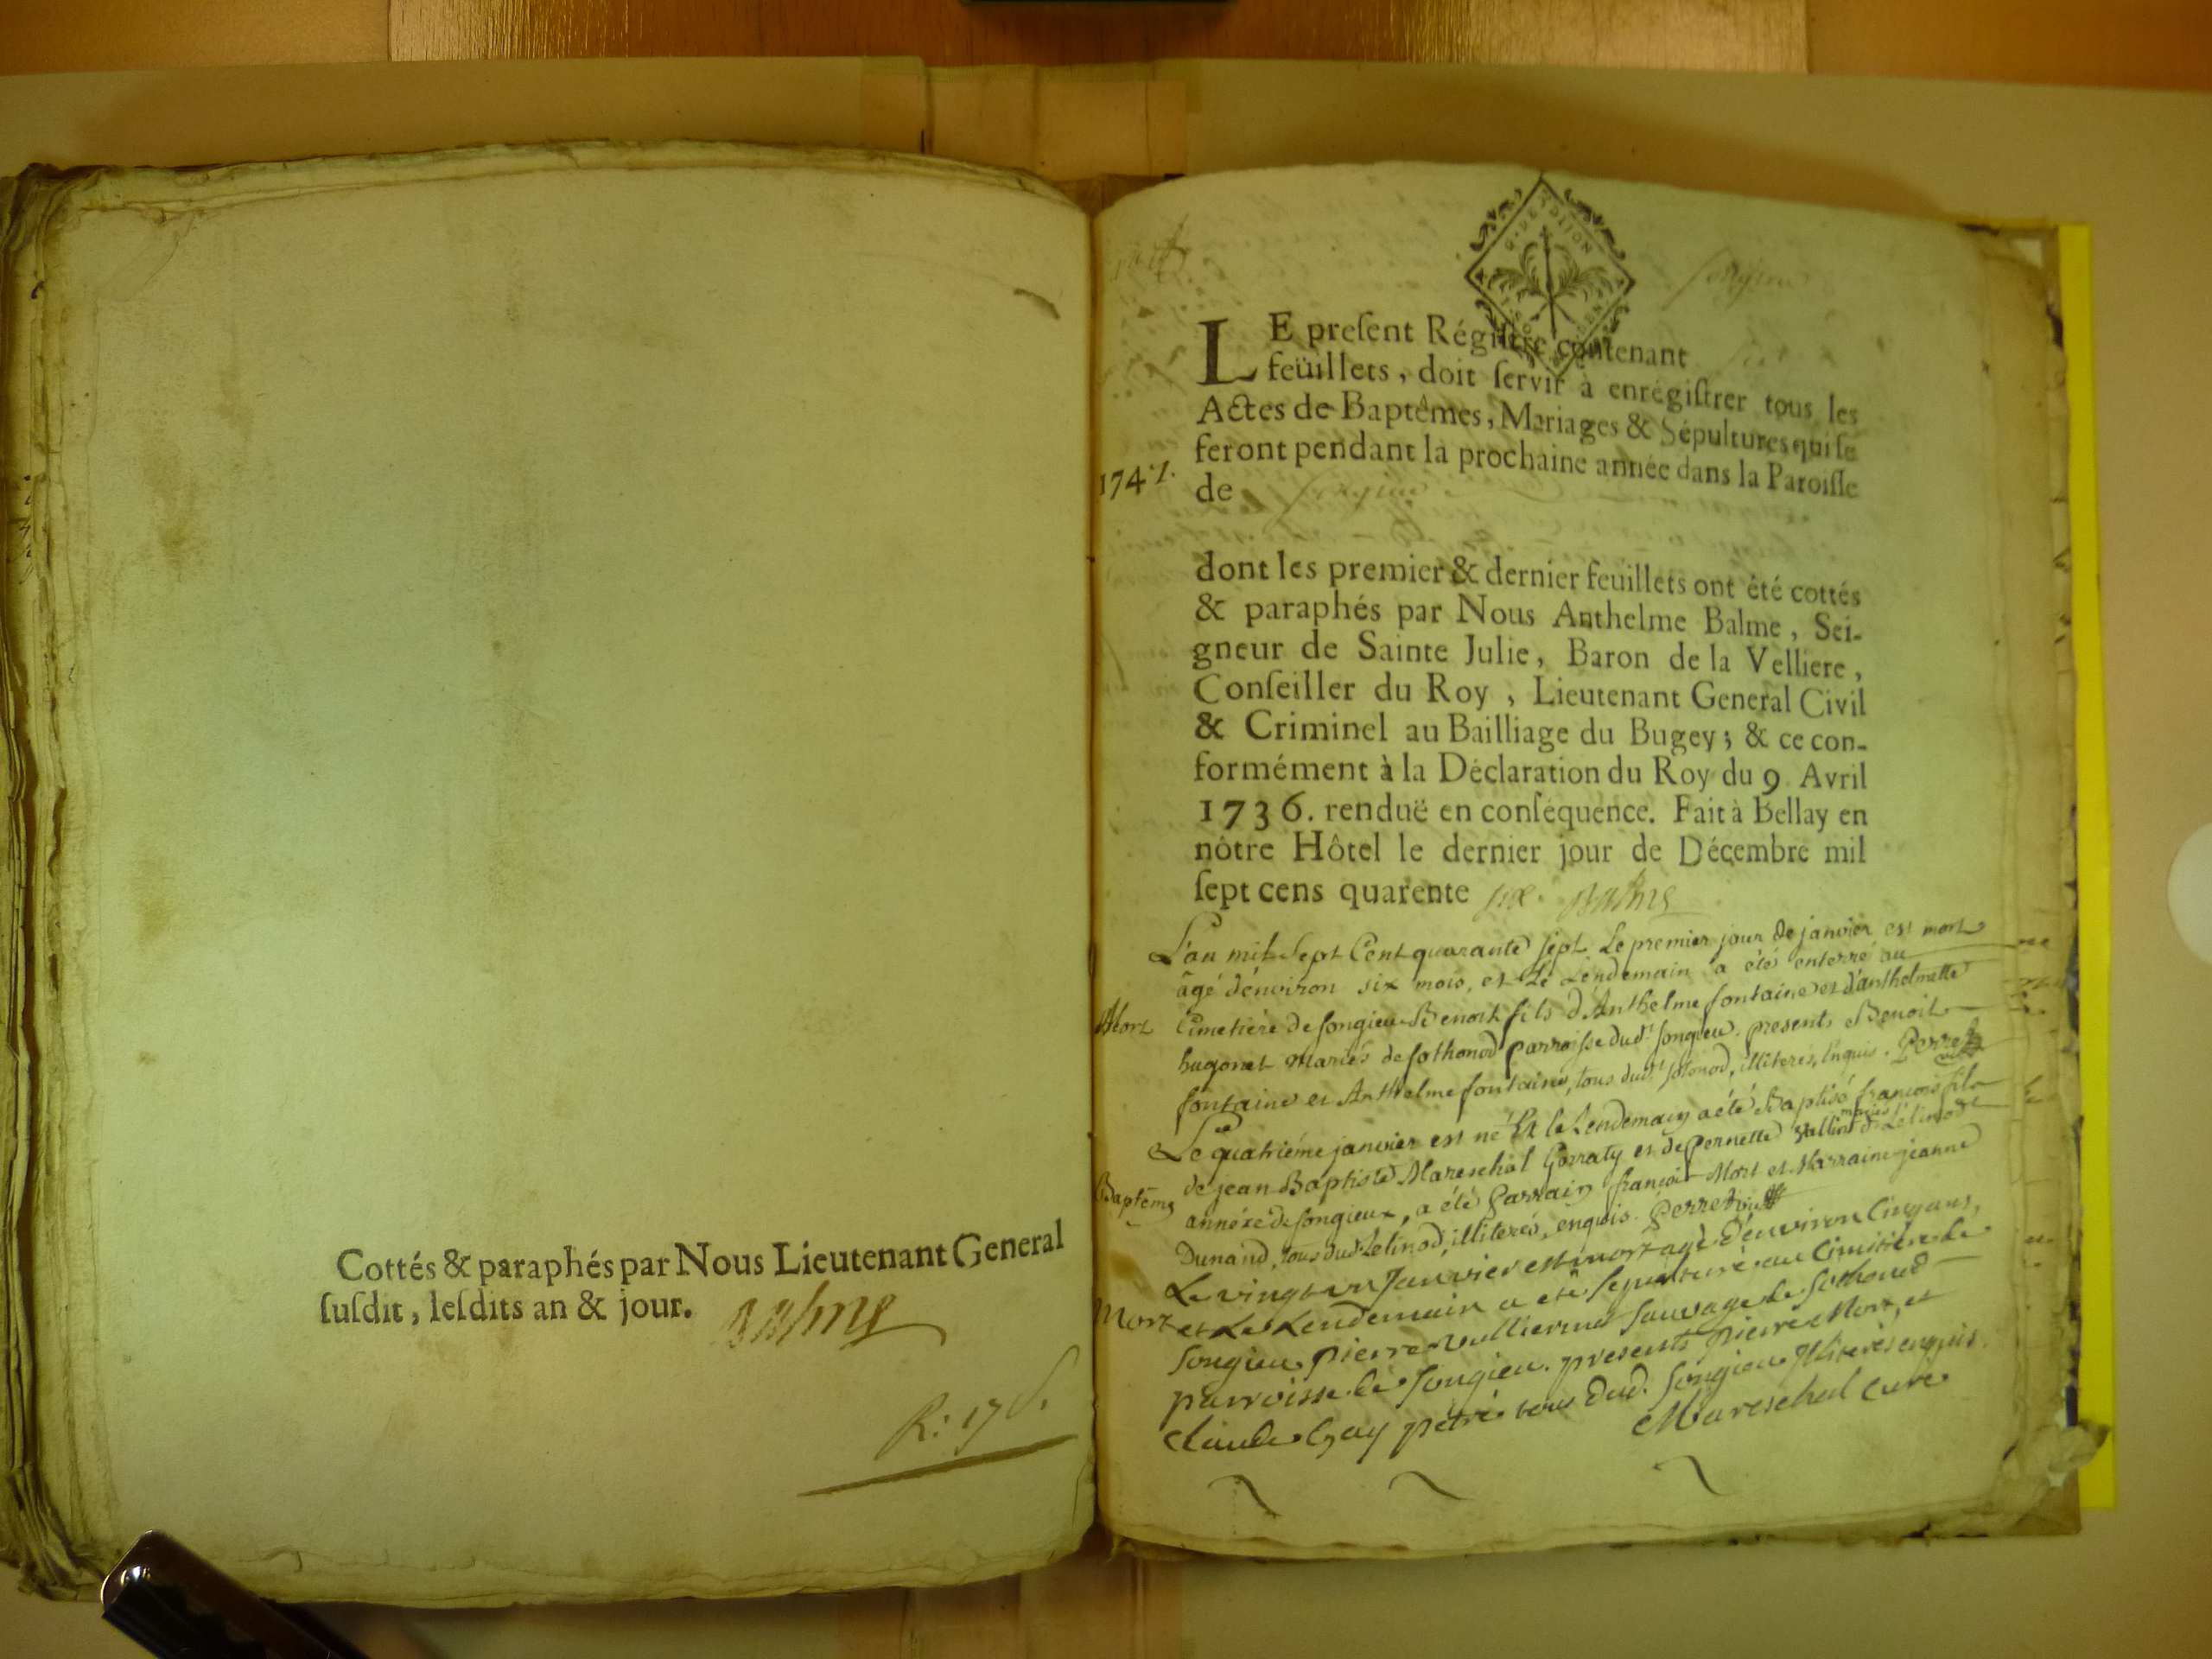 Cottés & paraphés par Nous Lieutenant General
ſuſdit, leſdits an & jour. Balme
R: 17
G. DE DIJON
LE preſent Régiſtre contenant
feüillets, doit ſervir à enrégiſtrer tous les
Actes de Baptêmes, Mariages & Sépultures qui ſe
feront pendant la prochaine année dans la Paroiſſe
1747.
de Songieu
dont les premier & dernier feuillets ont été cottés
& paraphés par Nous Anthelme Balme, Sei-
gneur de Sainte Julie, Baron de la Velliere,
Conſeiller du Roy, Lieutenant General Civil
& Criminel au Bailliage du Bugey; & ce con-
formément à la Déclaration du Roy du 9 Avril
1736. renduë en conſéquence. Fait à Bellay en
nôtre Hôtel le dernier jour de Décembre mil
ſept cens quarente six. Balme
L'an mil Sept Cent quarante sept Le premier jour de janvier est mort
âgé d'environ six mois, et Le Lendemain a étés enterré au
Mort
Cimetiére de songieu Benoit fils d'Anthelme fontaine et d'anthelmette
hugonet mariés de sothonod parroisse dud.t songieu. presents Benoit
fontaine et Anthelme fontaine, tous dud.t sotonod, illiterés, enquis. Perret
vic
Le quatriéme janvier est né Et le Lendemain a été Baptisé françois fils
de jean Baptiste Mareschal Gorraty et de pernette Vallin mariés de Lélinod
Baptême
annéxe de songieux, a été Parrain françois Mort et Marraine jeanne
Dunand, tous dud. Lelinod, illiterés, enquis. Perret vic
Le vingt un Janvier est mort agé d'environ Cinq ans,
Mort
et Le Lendemain a eté sepulturé au Cimitiére de
Songieu pierre Vulliermet Sauvage de Sothonod
parroisse de Songieu. presents pierre Mort, et
Claude Gay petré tous dud. Songieu Illiterés enquis.
Mareschal Curé